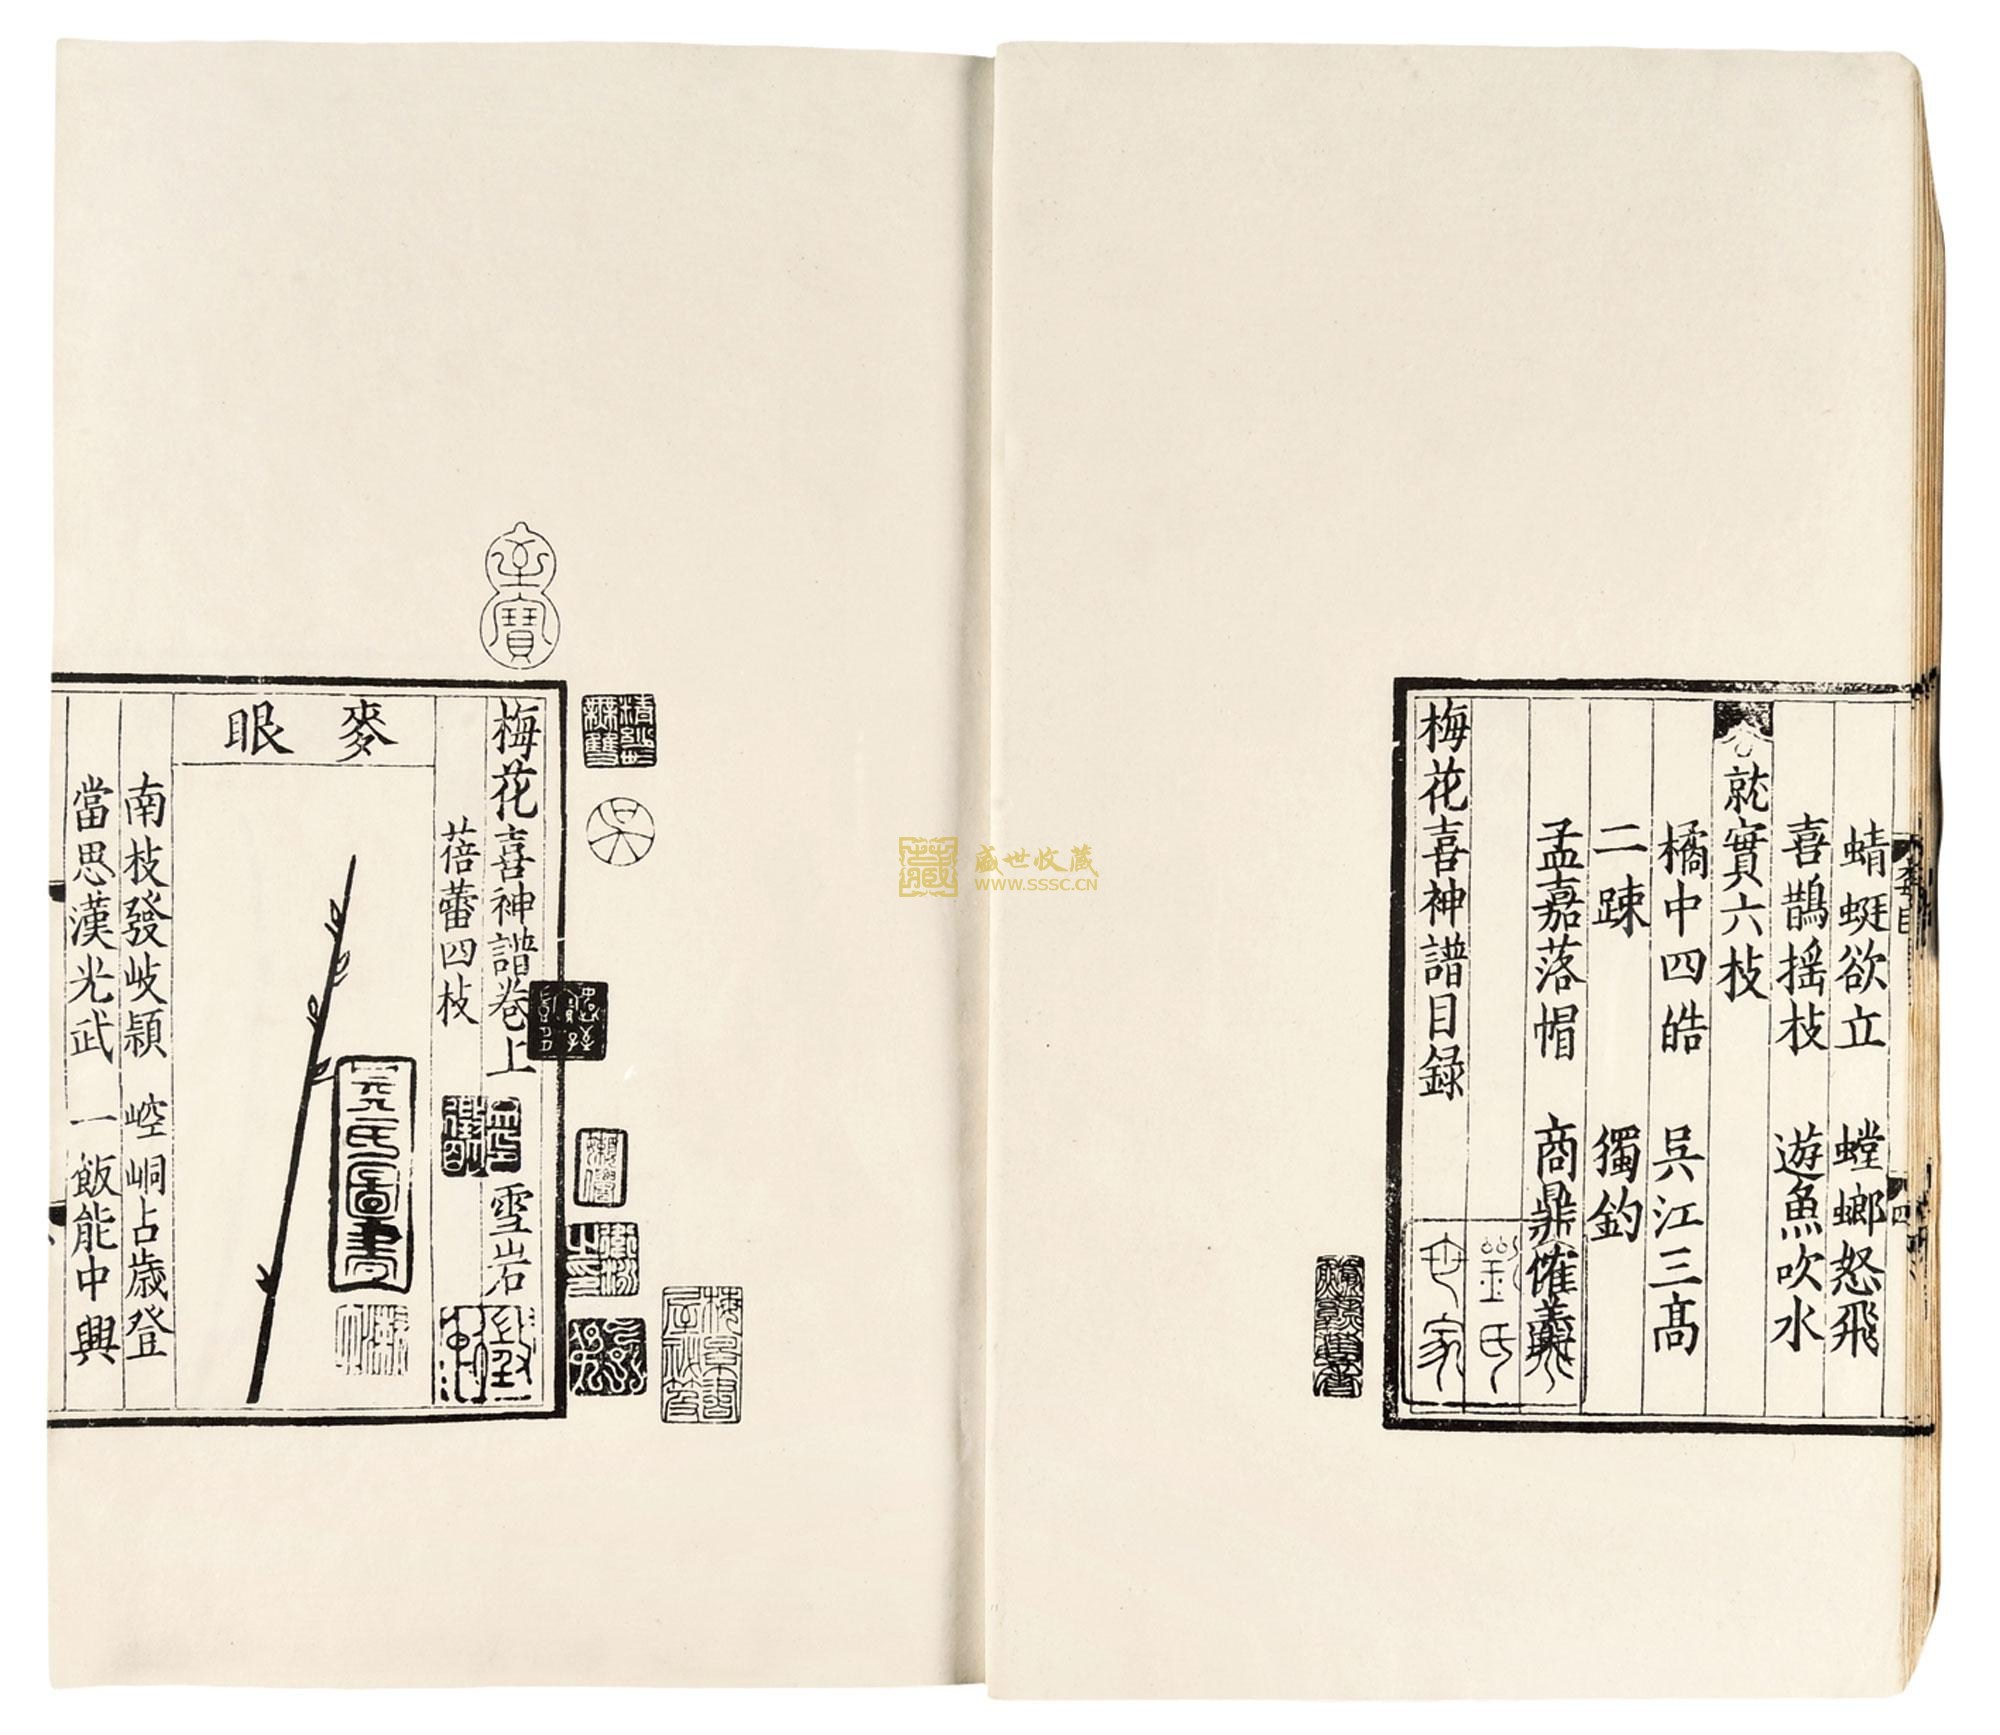 蜻蜓欲立 螳螂怒飛
喜鵲搖枝 遊魚吹水
就實六枝
橘中四皓 吳江三髙
二踈 獨釣
孟嘉落帽 商鼎催羹
梅花喜神譜目録
劉氏
世家
至寶
梅花喜神譜卷上 雪岩
蓓蕾四枝
麥眼
南枝發岐穎 崆峒占歲登
當思漢光武 一飯能中興
盛世收藏
WWW.SSSC.CN